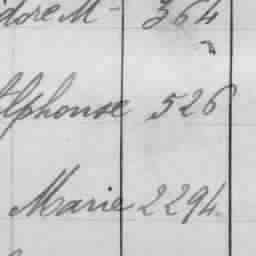 idore M- 364
Alphonse 526
Marie 2294